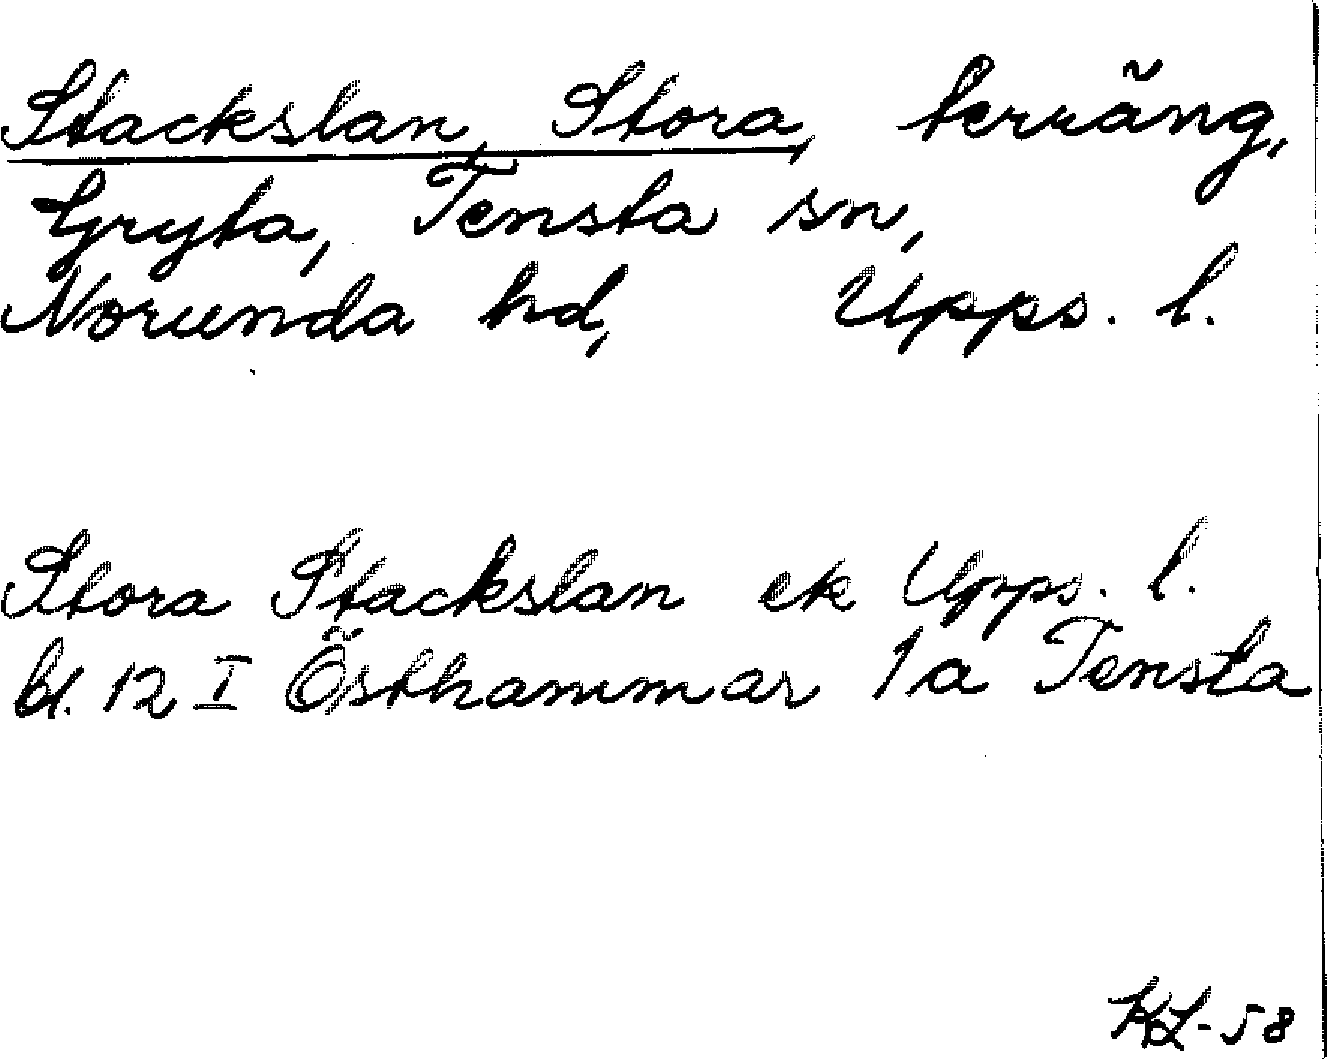 Stackslan, Stora, terräng,
Gryta, Tensta sn,
Norunda hd, Upps. l.
Stora Stackslan ek Upps. l.
bl. 12 I Östhammar 1a Tensta
KL-58